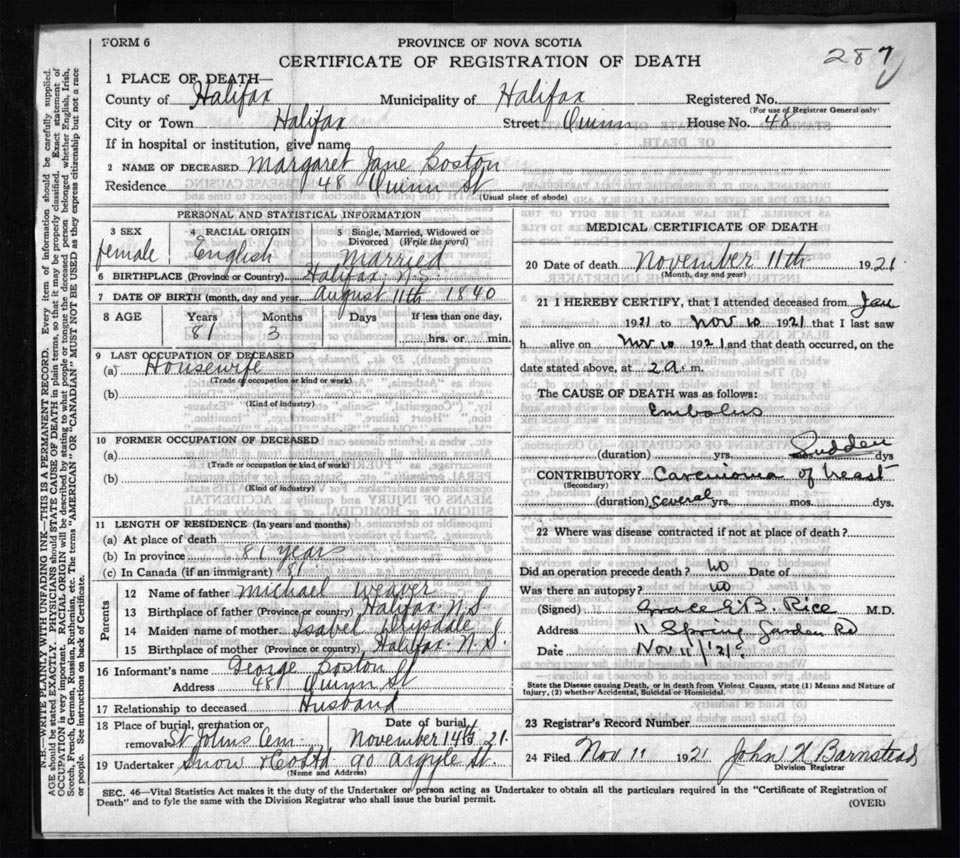 FORM 6
PROVINCE OF NOVA SCOTIA
287
CERTIFICATE OF REGISTRATION OF DEATH
1 PLACE OF DEATH—
County of Halifax Municipality of Halifax Registered No.
(For use of Registrar General only)
City or Town Halifax Street Quinn House No. 48
If in hospital or institution, give name
2 NAME OF DECEASED Margaret Jane Boston
Residence 48 Quinn St
(Usual place of abode)
PERSONAL AND STATISTICAL INFORMATION
3 SEX female
4 RACIAL ORIGIN English
5 Single, Married, Widowed or Divorced (Write the word) Married
6 BIRTHPLACE (Province or Country) Halifax N.S.
7 DATE OF BIRTH (month, day and year) August 11th 1840
8 AGE Years Months Days If less than one day,
81 3 hrs. or min.
9 LAST OCCUPATION OF DECEASED
(a) Housewife
(Trade or occupation or kind or work)
(b)
(Kind of industry)
10 FORMER OCCUPATION OF DECEASED
(a)
(Trade or occupation or kind or work)
(b)
(Kind of industry)
11 LENGTH OF RESIDENCE (In years and months)
(a) At place of death
(b) In province 81 years
(c) In Canada (if an immigrant) 81
Parents
12 Name of father Michael Weaver
13 Birthplace of father (Province or country) Halifax N.S.
14 Maiden name of mother Isabel
15 Birthplace of mother (Province or country) Halifax N.S.
16 Informant's name George Boston
Address 48 Quinn St
17 Relationship to deceased Husband
18 Place of burial, cremation or removal St Johns Cem Date of burial November 14th 21
19 Undertaker Snow & Co Ltd 90 Argyle St.
(Name and Address)
MEDICAL CERTIFICATE OF DEATH
20 Date of death November 11th 1921
(Month, day and year)
21 I HEREBY CERTIFY, that I attended deceased from Jan
1921 to Nov 10 1921 that I last saw
h alive on Nov 10 1921 and that death occurred, on the
date stated above, at 2 a. m.
The CAUSE OF DEATH was as follows:
Embolus
(duration) yrs. Sudden dys
CONTRIBUTORY Carcinoma of breast
(Secondary)
(duration) Several yrs. mos. dys.
22 Where was disease contracted if not at place of death?
Did an operation precede death? No Date of
Was there an autopsy? No
(Signed) Grace E. B. Rice M.D.
Address 11 Spring Garden Rd
Date Nov 11/21
State the Disease causing Death, or in death from Violent Causes, state (1) Means and Nature of
Injury, (2) whether Accidental, Suicidal or Homicidal.
23 Registrar's Record Number
24 Filed Nov 11 1921 John H Barnstead
Division Registrar
SEC. 46—Vital Statistics Act makes it the duty of the Undertaker or person acting as Undertaker to obtain all the particulars required in the "Certificate of Registration of
Death" and to fyle the same with the Division Registrar who shall issue the burial permit.
(OVER)
N.B.—WRITE PLAINLY WITH UNFADING INK—THIS IS A PERMANENT RECORD. Every item of information should be carefully supplied.
AGE should be stated EXACTLY. PHYSICIANS should STATE CAUSE OF DEATH in plain terms, so that it may be properly classified. Exact statement of
OCCUPATION is very important. RACIAL ORIGIN will be described by stating to what people or tongue the deceased person belonged whether English, Irish,
Scotch, French, German, Russian, Ruthenian, etc. The terms "AMERICAN" OR "CANADIAN" MUST NOT BE USED as they express citizenship but not a race
or people. See instructions on back of Certificate.